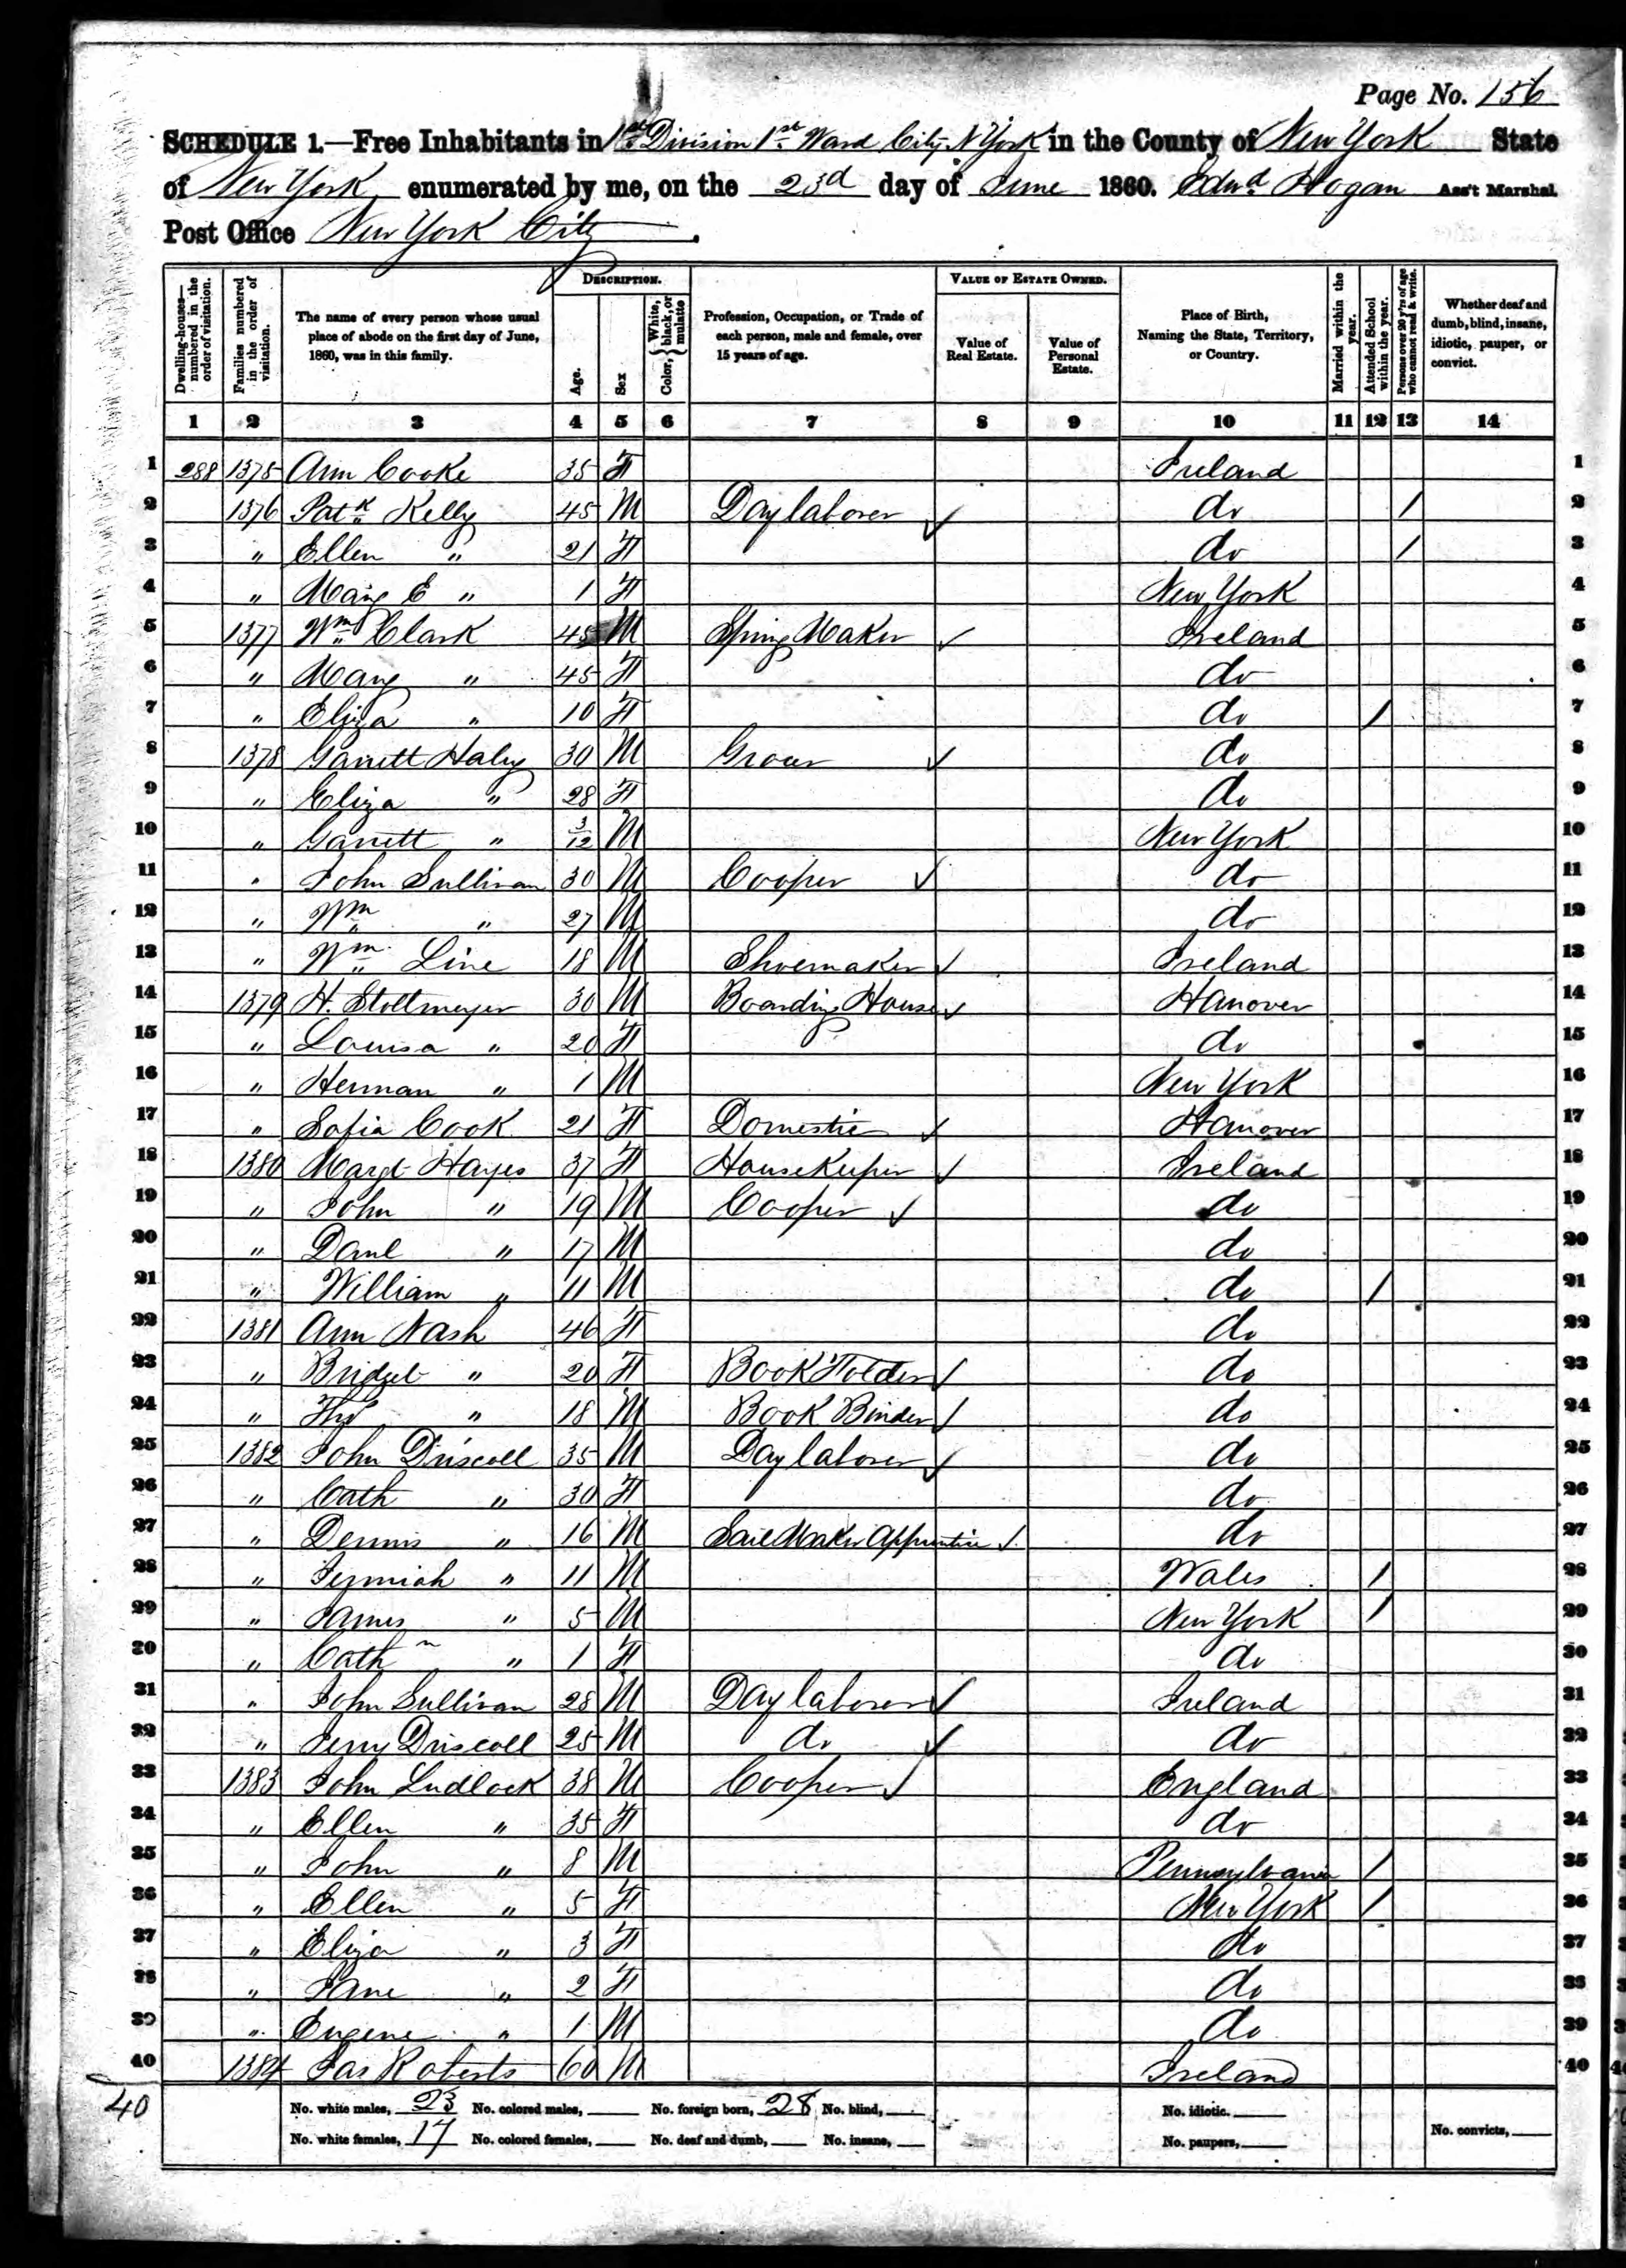 Page No. 156
SCHEDULE 1.—Free Inhabitants in 1st Division 1st Ward City N York in the County of New York State
of New York enumerated by me, on the 23d day of June 1860. Edwd Hogan Ass't Marshal
Post Office New York City.
Dwelling-houses—numbered in the order of visitation.
Families numbered in the order of visitation.
The name of every person whose usual place of abode on the first day of June, 1860, was in this family.
DESCRIPTION.
Age.
Sex
Color, { White, black, or mulatto
Profession, Occupation, or Trade of each person, male and female, over 15 years of age.
VALUE OF ESTATE OWNED.
Value of Real Estate.
Value of Personal Estate.
Place of Birth, Naming the State, Territory, or Country.
Married within the year.
Attended School within the year.
Persons over 20 y'rs of age who cannot read & write.
Whether deaf and dumb, blind, insane, idiotic, pauper, or convict.
1 2 3 4 5 6 7 8 9 10 11 12 13 14
1 288 1375 Ann Cooke 35 F Ireland 1
2 1376 Patk Kelly 45 M Day laborer ✓ do / 2
3 " Ellen " 21 F do / 3
4 " Mary E " 1 F New York 4
5 1377 Wm Clark 45 M Spring Maker ✓ Ireland 5
6 " Mary " 45 F do 6
7 " Eliza " 10 F do / 7
8 1378 Garrett Haley 30 M Grocer ✓ do 8
9 " Eliza " 28 F do 9
10 " Garrett " 3/12 M New York 10
11 " John Sullivan 30 M Cooper ✓ do 11
12 " Wm " 27 M do 12
13 " Wm Line 18 M Shoemaker ✓ Ireland 13
14 1379 H. Stoltmeyer 30 M Boarding House ✓ Hanover 14
15 " Louisa " 20 F do 15
16 " Herman " 1 M New York 16
17 " Sofia Cook 21 F Domestic ✓ Hanover 17
18 1380 Margt Hayes 37 F HouseKeeper ✓ Ireland 18
19 " John " 19 M Cooper ✓ do 19
20 " Danl " 17 M do 20
21 " William " 11 M do / 21
22 1381 Ann Nash 46 F do 22
23 " Bridget " 20 F Book Folder ✓ do 23
24 " Ths " 18 M Book Binder ✓ do 24
25 1382 John Driscoll 35 M Day laborer ✓ do 25
26 " Cath " 30 F do 26
27 " Dennis " 16 M Sail Maker Apprentice ✓ do 27
28 " Jermiah " 11 M Wales / 28
29 " James " 5 M New York / 29
30 " Cathn " 1 F do 30
31 " John Sullivan 28 M Day laborer ✓ Ireland 31
32 " Jerry Driscoll 25 M do ✓ do 32
33 1383 John Ludlock 38 M Cooper ✓ England 33
34 " Ellen " 35 F do 34
35 " John " 8 M Pennsylvania / 35
36 " Ellen " 5 F New York / 36
37 " Eliza " 3 F do 37
38 " Jane " 2 F do 38
39 " Eugene " 1 M do 39
40 1384 Jas Roberts 60 M Ireland 40
40 No. white males, 23 No. colored males, No. foreign born, 28 No. blind, No. idiotic. No. convicts,
No. white females, 17 No. colored females, No. deaf and dumb, No. insane, No. paupers,